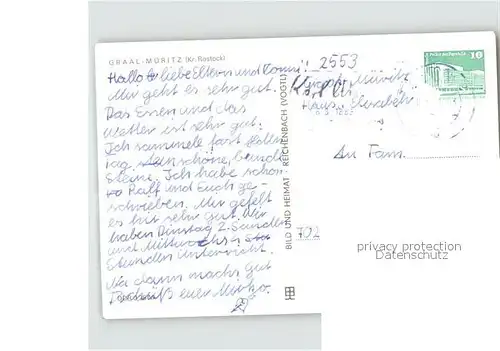 GRAAL-MÜRITZ (Kr. Rostock)
Hallo liebe Eltern und
Mir geht es sehr gut.
Das Essen und das
Wetter ist sehr gut.
Ich sammele fast jeden
Tag schöne, bunde
Steine. Ich habe schon
Ralf und Euch ge-
schrieben. Mir gefelt
es hir sehr gut. Wir
haben Dinstag 2 Stunden
und Mittwoch
Stunden Unterricht.
Na dann machs gut
Tschüß euer
BILD UND HEIMAT REICHENBACH (VOGTL)
2553
Graal-Müritz
Haus Elisabeth
An Fam.
702
10
privacy protection
Datenschutz